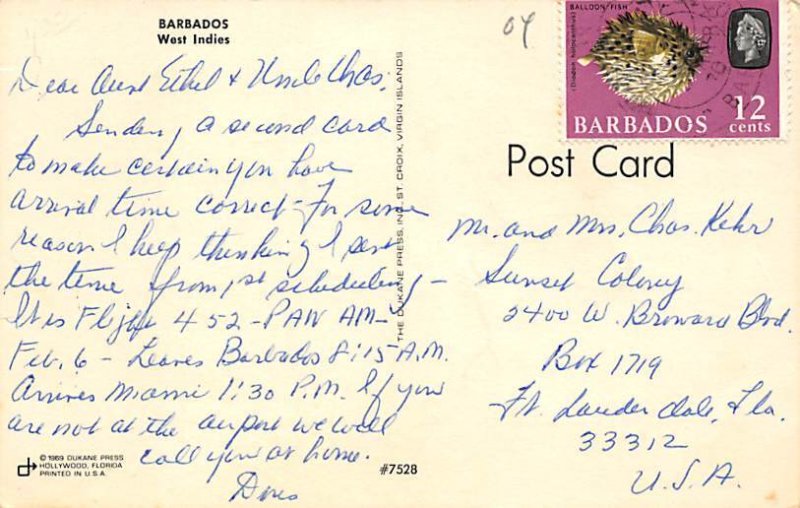 BARBADOS
West Indies
Dear Aunt Ethel & Uncle Chas.
Sending a second card
to make certain you have
arrival time correct - For some
reason I keep thinking I sent
the time from 1st scheduling -
It is Flight 452 - PAN AM -
Feb. 6 - Leaves Barbados 8:15 A.M.
Arrives Miami 1:30 P.M. If you
are not at the airport we will
call you at home.
Doris
© 1969 DUKANE PRESS
HOLLYWOOD, FLORIDA
PRINTED IN U.S.A.
#7528
THE DUKANE PRESS, INC. ST. CROIX, VIRGIN ISLANDS
04
BALLOON FISH
BARBADOS
12
cents
Post Card
Mr. and Mrs. Chas. Kehr
Sunset Colony
2400 W. Broward Blvd.
Box 1719
Ft. Lauderdale, Fla.
33312
U.S.A.